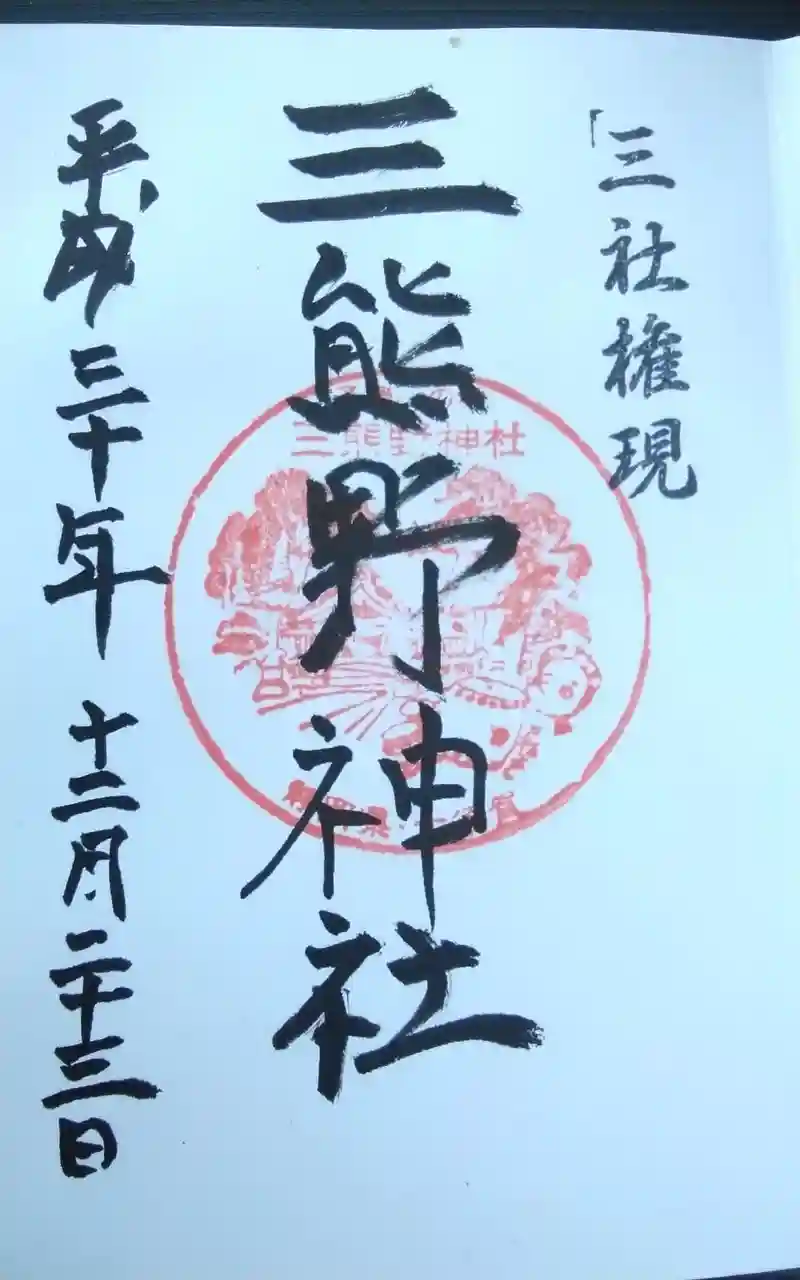 「三社権現
三熊野神社
三熊野神社
平成三十年十二月二十三日